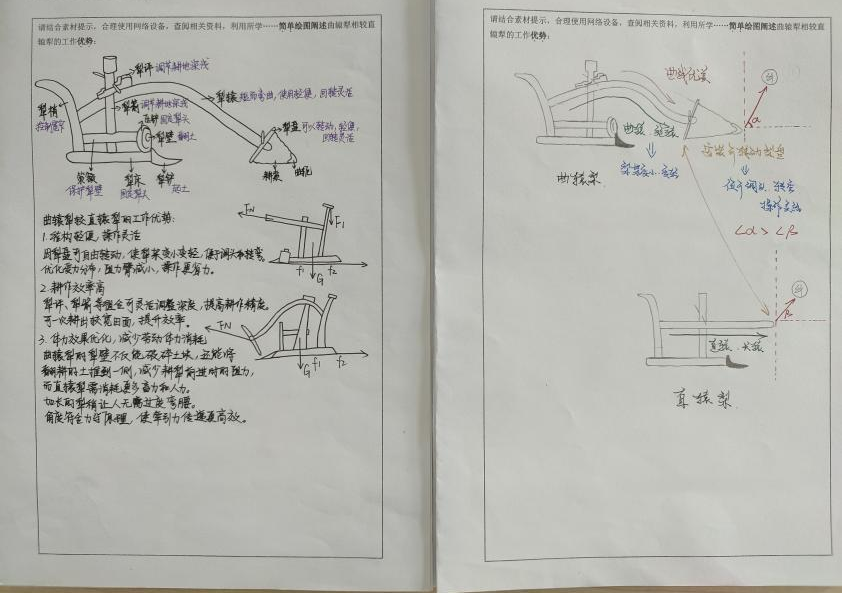 请结合素材提示，合理使用网络设备，查阅相关资料，利用所学……简单绘图阐述曲辕犁相较直
辕犁的工作优势：
犁评 调节耕地深浅
犁箭 调节耕地深浅
犁辕 短而弯曲，使用轻便，回转灵活
犁梢
控制宽窄
固定犁头
犁壁 翻土
犁盘 可以转动，轻便，
回转灵活
保护犁壁
犁床
固定犁头
犁铲
起土
耕索
曲轭
曲辕犁较直辕犁的工作优势：
1. 结构轻便，操作灵活
因犁盘可自由转动，使犁架变小变轻，便于调头和转弯。
优化受力分布，阻力臂减小，操作更省力。
2. 耕作效率高
犁评、犁箭等组合可灵活调整深度，提高耕作精度。
可一次耕出较宽田面，提升效率。
3. 体力效果优化，减少劳动体力消耗
曲辕犁的犁壁不仅能破碎土块，还能将
翻耕的土推到一侧，减少耕犁前进时的阻力，
而直辕犁需消耗更多畜力和人力。
加长的犁梢让人无需过度弯腰。
角度符合力学原理，使牵引力传递更高效。
FN
F1
f1
G
f2
FN
G
f1
f2
请结合素材提示，合理使用网络设备，查阅相关资料，利用所学……简单绘图阐述曲辕犁相较直
辕犁的工作优势：
牛
α
曲辕、短辕
犁架变小、变轻
便于调头、转弯
操作灵活
曲辕犁
∠α > ∠β
牛
β
直辕、长辕
直辕犁